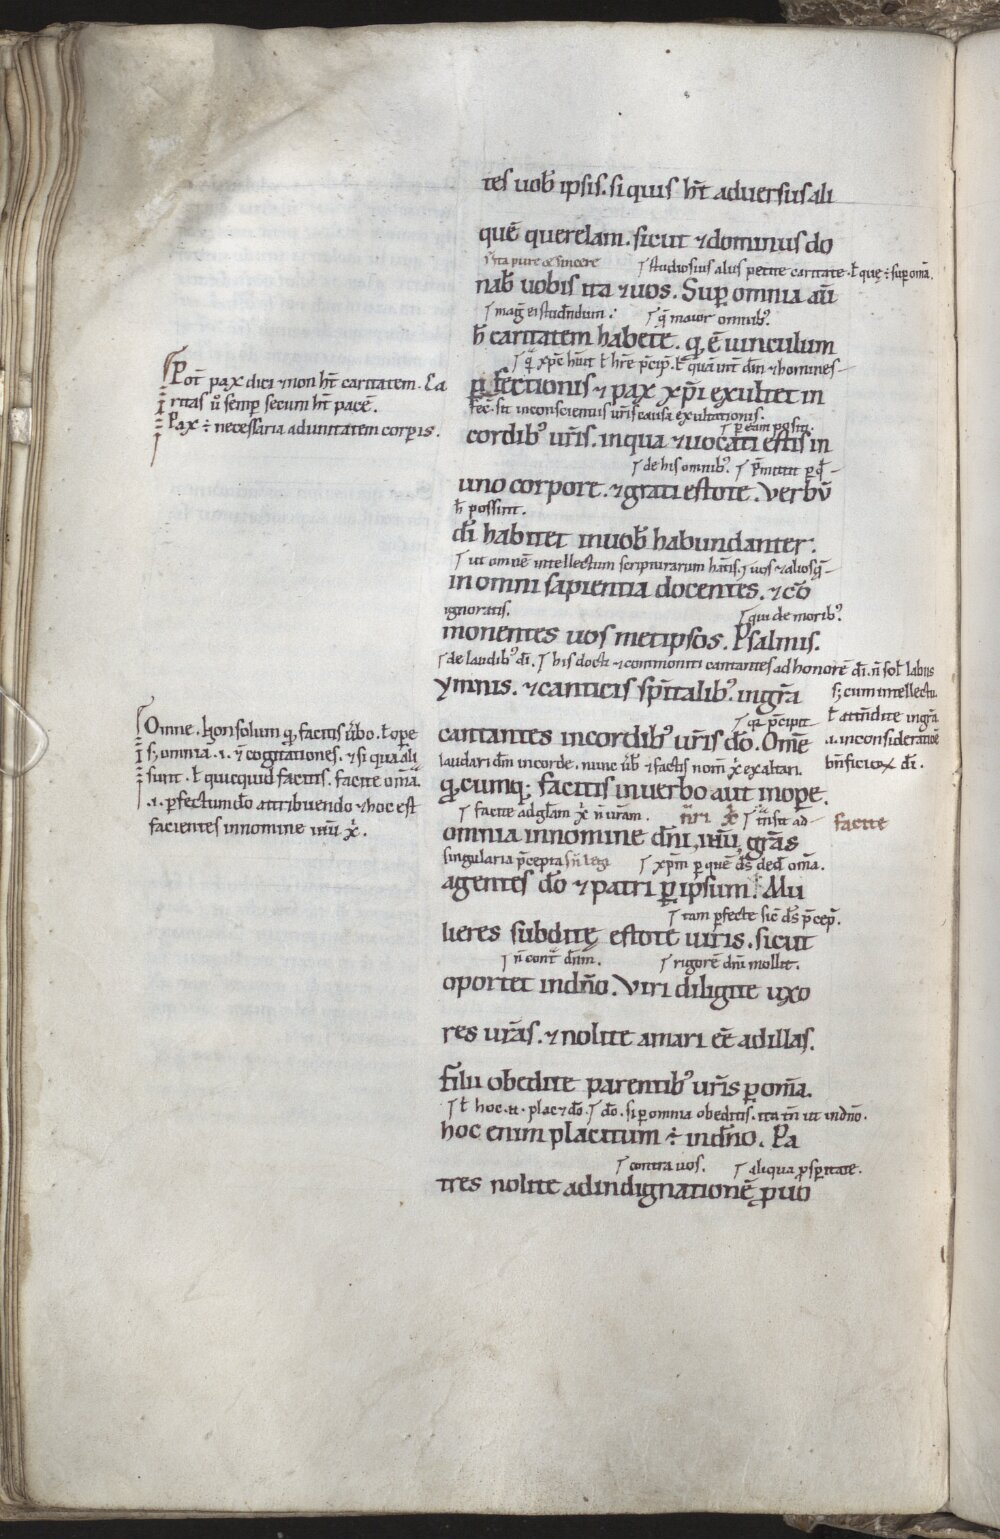 tes uob̄ ipsis. si quis h̄t aduersus ali
quē querelam. sicut ⁊ dominus do
ſ ita pure & sincere ſ studiosius aliis petite caritatē. ł quę ÷ sup om̄a.
nab̄ uobis ita ⁊ uos. Sup̱ omnia aū
ſ q̄ maior omnib᷒.
h̄ caritatem habete. q, ē uinculum
p̱fectionis ⁊ pax xp̄i exultet in
fec̄. sit in conscientiis ur̄is causa exultationis.
ſ p̱ eam positi.
cordib᷒ ur̄is. in qua ⁊ uocati estis in
ſ de his omnib᷒. ſ p̄mittit p̱ q̄
uno corpore. ⁊ grati estote. Verbū
h̄ possint.
dī habitet in uob̄ habundanter.
ſ ut omnē intellectum scripturarum hātis. ⁊ uos ⁊ aliosq̄
in omni sapientia docentes. ⁊ cō
ignoratis. ſ qui de morib᷒.
monentes uos metipsos. Psalmis.
ſ de laudib᷒ dī. ſ his docti ⁊ commoniti cantantes ad honorē dī. n̄ sol̄ labiis
ymnis. ⁊ canticis sp̄italib᷒. in gr̄a
s; cum intellectu.
cantantes in cordib᷒ ur̄is dō. Om̄e
ł attn̄dite in gr̄a
.i. in consideratiōe
bn̄ficiox dī.
laudari dm̄ in corde. nunc ūb̄ ⁊ factis nom̄ x̄ exaltari.
q,cumq; facitis in uerbo aut in ope̱.
ſ facite ad gl̄am x̄ n̄ ur̄am. nr̄i x̄ facite
omnia in nomine dn̄i, ihū, gr̄as
singularia p̄cepta ſ xpm̄ p̱ quē dš ded̄ om̄a.
agentes dō ⁊ patri p̱ ipsum. Mu
ſ tam p̱fecte sic̄ dš p̄cep̱.
lieres subditę estote uiris. sicut
ſ n̄ cont̄ dnm̄. ſ rigorē dn̄i mollit.
oportet in dn̄o. Viri diligite uxo
res ur̄as. ⁊ nolite amari eē ad illas.
Filii obedite parentib᷒ ur̄is p̱ om̄a.
ſ ł hoc. n. plac& dō. ſ dō. si p̱ omnia obeditis. ita tn̄ ut in dn̄o.
hoc enim placitum ÷ in dn̄o. Pa
ſ contra uos. ſ aliqua p̱sp̱itate.
tres nolite ad indignationē puo
Pot̄ pax dici ⁊ non h̄t caritatem. Ca
ritas ū semp̱ secum h̄t pacē.
Pax ÷ necessaria ad unitatem corp̱is.
Omne. h̄ non solum q, facitis ūbo. ł ope
s; omnia .i. ⁊ cogitationes. ⁊ si qua alia
sunt. ł quicquid facitis. facite om̄a.
.i. p̱fectum dō attribuendo ⁊ hoc est
facientes in nomine ihū x̄.